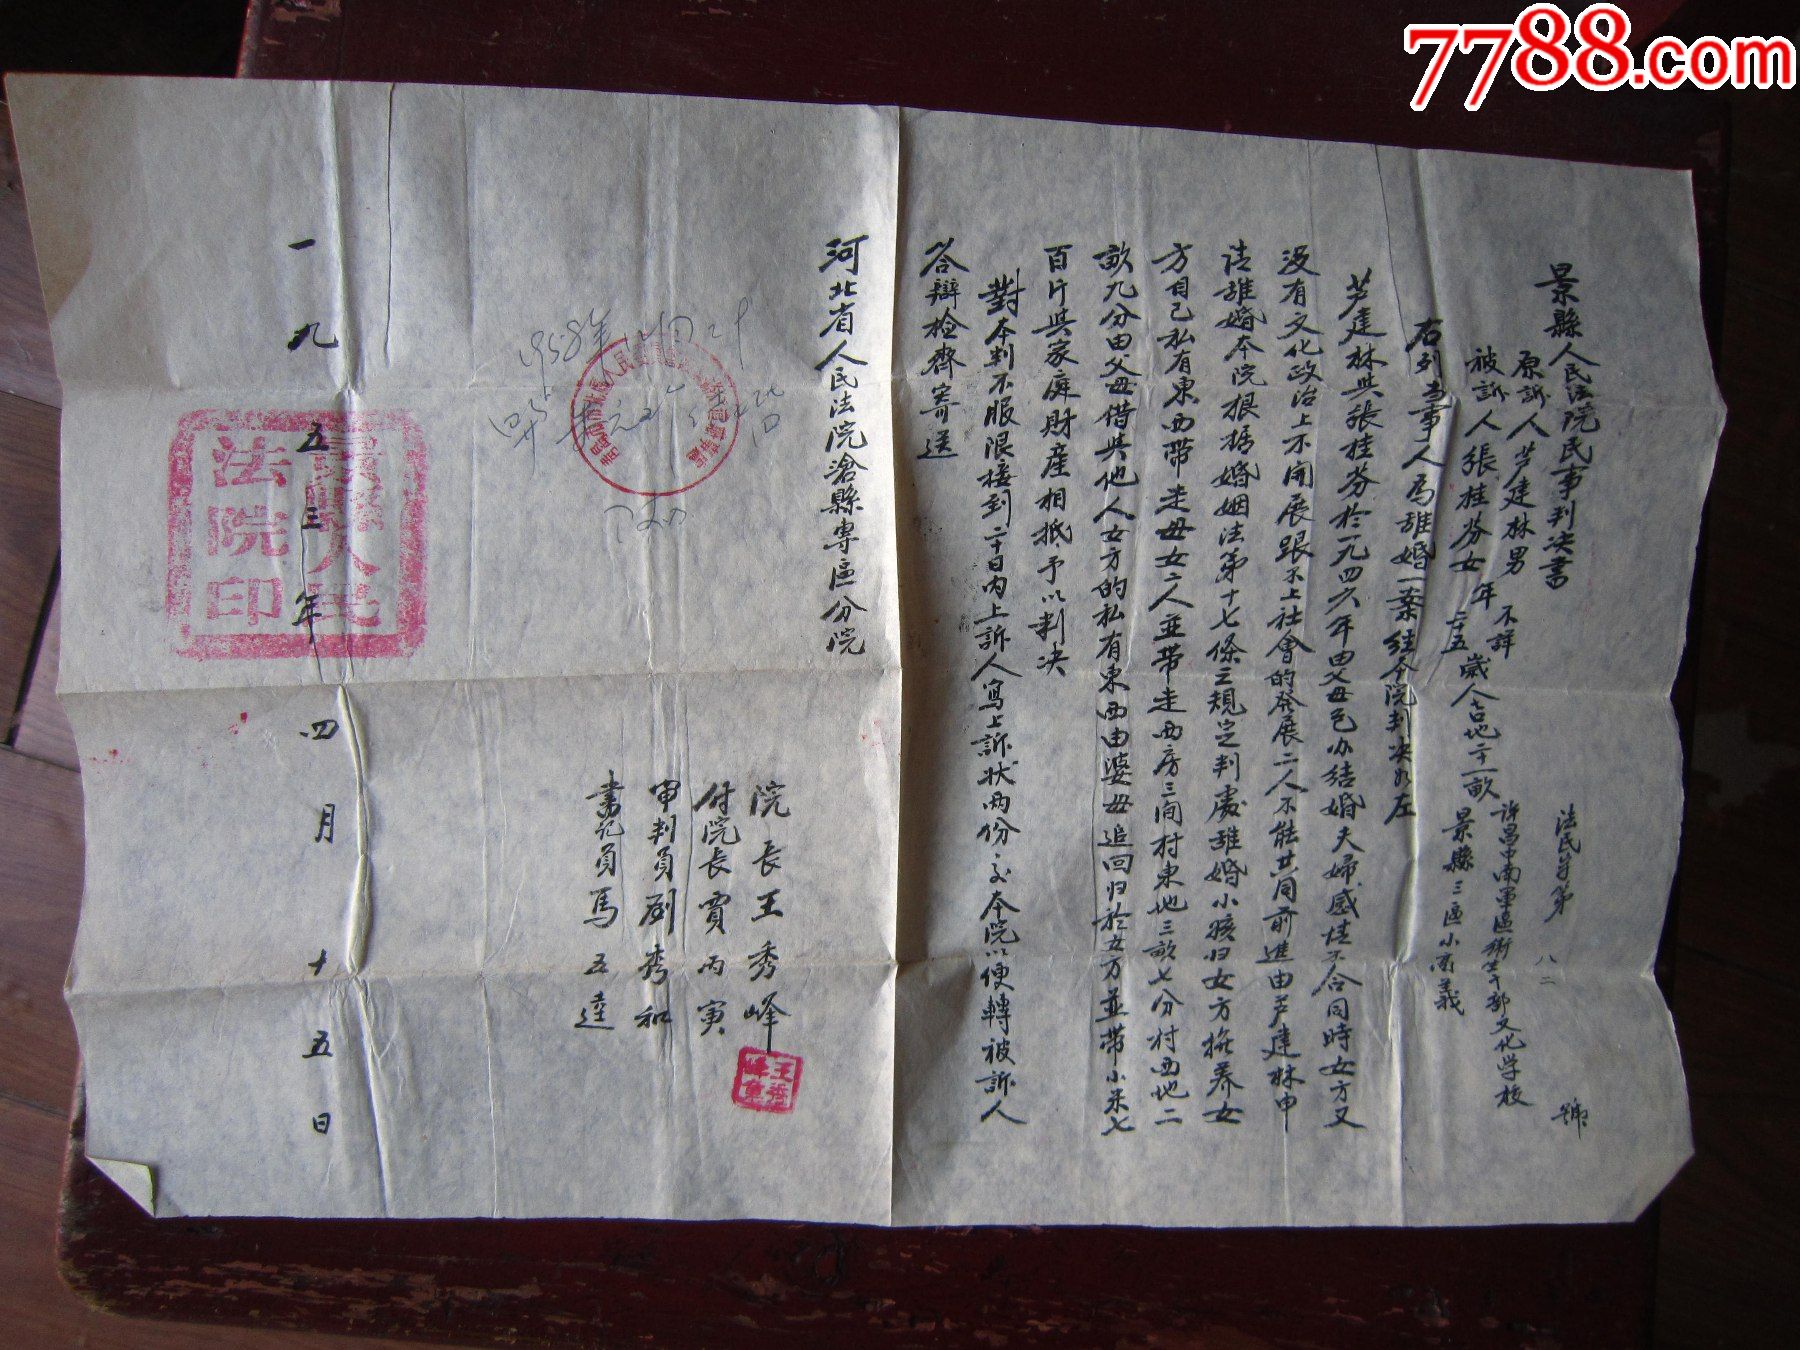 7788.com
景縣人民法院民事判决書
法民字第 八二 號
原訴人芦建林男 年 不詳 歲 許昌中南軍區衛生干部文化学校
被訴人張桂芬女 二十五 人六口地二十一畝 景縣三區小南義
右列当事人為離婚一案經本院判决如左
芦建林與張桂芬於一九四六年由父母包办結婚夫婦感情不合同時女方又
没有文化政治上不開展跟不上社會的發展二人不能共同前進由芦建林申
請離婚本院根据婚姻法第十七條之規定判處離婚小孩归女方撫养女
方自己私有東西带走母女二人並带走西房三间村東地三畝七分村西地二
畝九分由父母借與他人女方的私有東西由婆母追回归於女方並带小米七
百斤與家庭財産相抵予以判决
對本判不服限接到二十日内上訴人寫上訴状两份交本院以便轉被訴人
答辯檢齊寄送
河北省人民法院滄縣專區分院
院長王秀峰
付院長賈丙寅
審判員劉秀和
書記員馬五達
一九五三年四月十五日
景縣人民
法院印
王秀
峰章
1958年